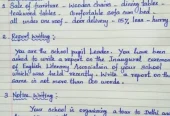 Sale of furniture - wooden chairs - dining tables -
textured tables - comfortable and cushioned
all under one roof - door delivery - 15% less - hurry
2. Report Writing :
You are the school pupil Leader. You have been
asked to write a report on the Inaugural ceremony
of English Literary Association of your school
which was held recently. Write a report on the
same in not more than 100 words.
3. Notice Writing :
Your school is organising a tour to Delhi and